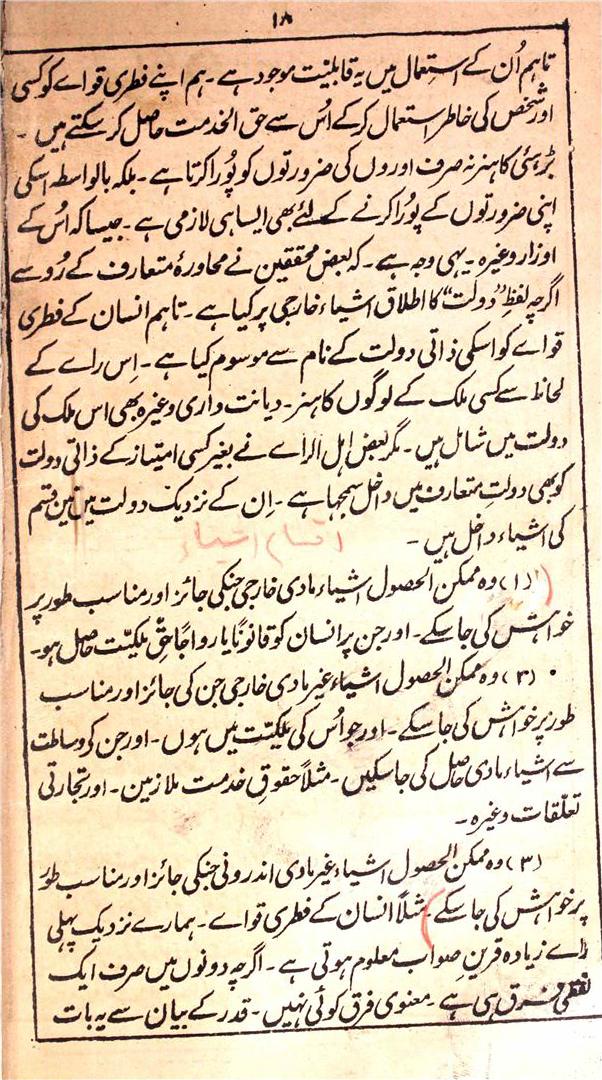 ۱۸
تاہم اُن کے استعمال میں یہ قابلیت موجود ہے ۔ ہم اپنے فطری قواے کو کسی
اور شخص کی خاطر استعمال کرکے اُس سے حق الخدمت حاصل کر سکتے ہیں ۔
بڑہئی کا ہنر نہ صرف اوروں کی ضرورتوں کو پُورا کرتا ہے ۔ بلکہ بالواسطہ اسکی
اپنی ضرورتوں کے پُورا کرنے کے لئے بھی ایسا ہی لازمی ہے ۔ جیسا کہ اُس کے
اوزار وغیرہ ۔ یہی وجہ ہے ۔ کہ بعض محققین نے محاورۂ متعارف کے رُو سے
اگرچہ لفظ "دولت" کا اطلاق اشیاء خارجی پر کیا ہے ۔ تاہم انسان کے فطری
قواے کو اسکی ذاتی دولت کے نام سے موسوم کیا ہے ۔ اِس راے کے
لحاظ سے کسی ملک کے لوگوں کا ہنر ۔ دیانت داری وغیرہ بھی اس ملک کی
دولت میں شامل ہیں ۔ مگر بعض اہل الراے نے بغیر کسی امتیاز کے ذاتی دولت
کو بھی دولتِ متعارف میں داخل سمجہا ہے ۔ اِن کے نزدیک دولت میں تین قسم
کی اشیاء داخل ہیں ۔
اقسام اشیاء
(۱) وہ ممکن الحصول اشیاء مادی خارجی جنکی جائز اور مناسب طور پر
خواہش کی جا سکے ۔ اور جن پر انسان کو قانونًا یا رواجًا حقِ ملکیّت حاصل ہو ۔
(۲) وہ ممکن الحصول اشیاء غیر مادی خارجی جن کی جائز اور مناسب
طور پر خواہش کی جا سکے ۔ اور جو اُس کی ملکیّت میں ہوں ۔ اور جن کی وساطت
سے اشیاء مادی حاصل کی جا سکیں ۔ مثلاً حقوقِ خدمت ملازمین ۔ اور تجارتی
تعلّقات وغیرہ ۔
(۳) وہ ممکن الحصول اشیاء غیر مادی اندرونی جنکی جائز اور مناسب طور
پر خواہش کی جا سکے ۔ مثلاً انسان کے فطری قواے ۔ ہمارے نزدیک پہلی
راے زیادہ قرینِ صواب معلوم ہوتی ہے ۔ اگرچہ دونوں میں صرف ایک
لفظی فرق ہی ہے ۔ معنوی فرق کوئی نہیں ۔ قدر کے بیان سے یہ بات